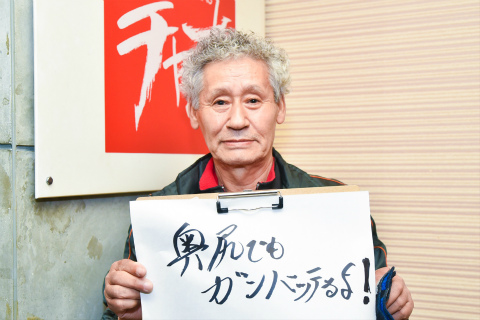 奥尻でも
ガンバッテるよ!